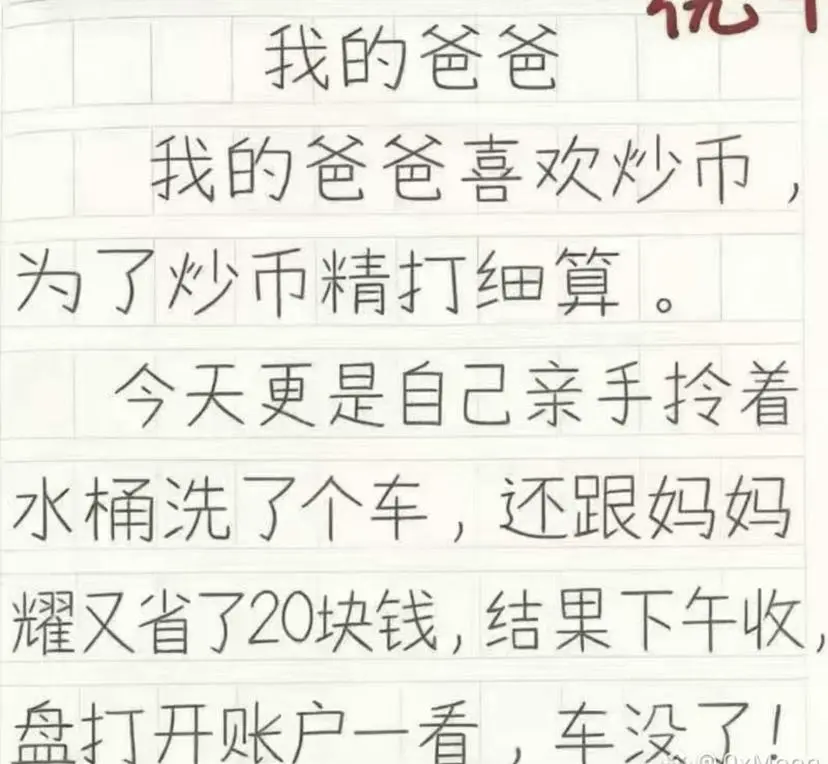 我的爸爸
我的爸爸喜欢炒币，
为了炒币精打细算。
今天更是自己亲手拎着
水桶洗了个车，还跟妈妈
耀又省了20块钱，结果下午收，
盘打开账户一看，车没了！